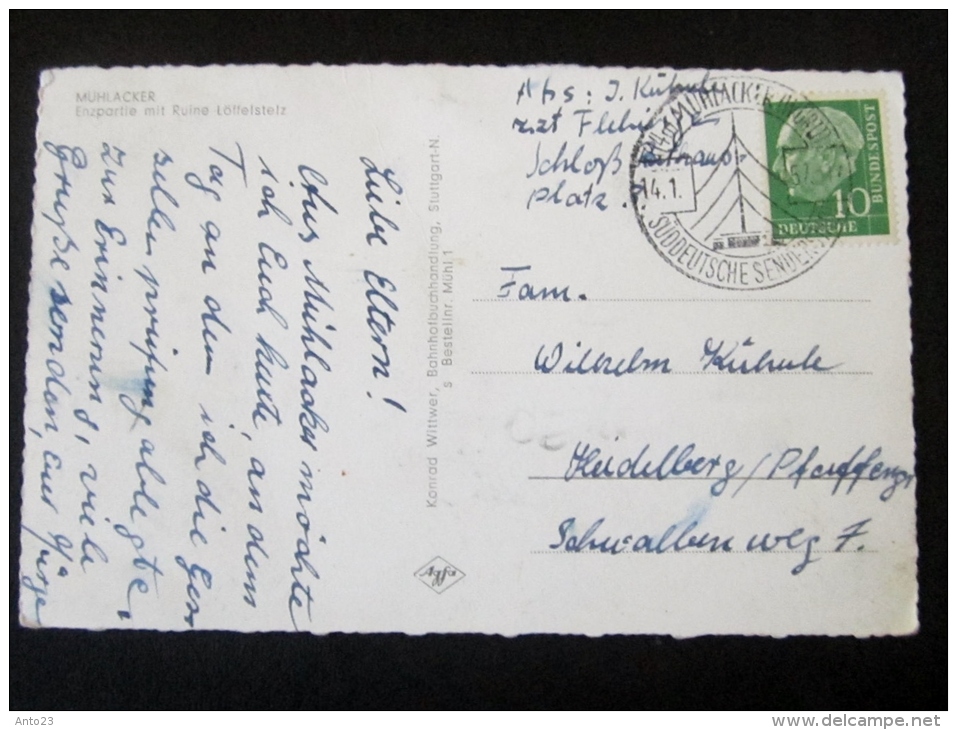 MÜHLACKER
Enzpartie mit Ruine Löffelstelz
Liebe Eltern!
Aus Mühlacker möchte
ich Euch heute, an dem
Tag an dem ich die Gesel
sellenprüfung ablegte,
zur Erinnerung, viele
Grüße senden, Eur
Konrad Wittwer, Bahnhofbuchhandlung, Stuttgart-N.
s Bestellnr. Mühl. 1
Agfa
Abs: J. Kühnle
z.zt
Schloß
platz
MÜHLACKER (WÜRTT)
14.1.
SÜDDEUTSCHE SENDER
10
DEUTSCHE
BUNDESPOST
Fam.
Wilhelm Kühnle
Heidelberg/Pfaffengr
Schwalbenweg 7.
Anto23
www.delcampe.net